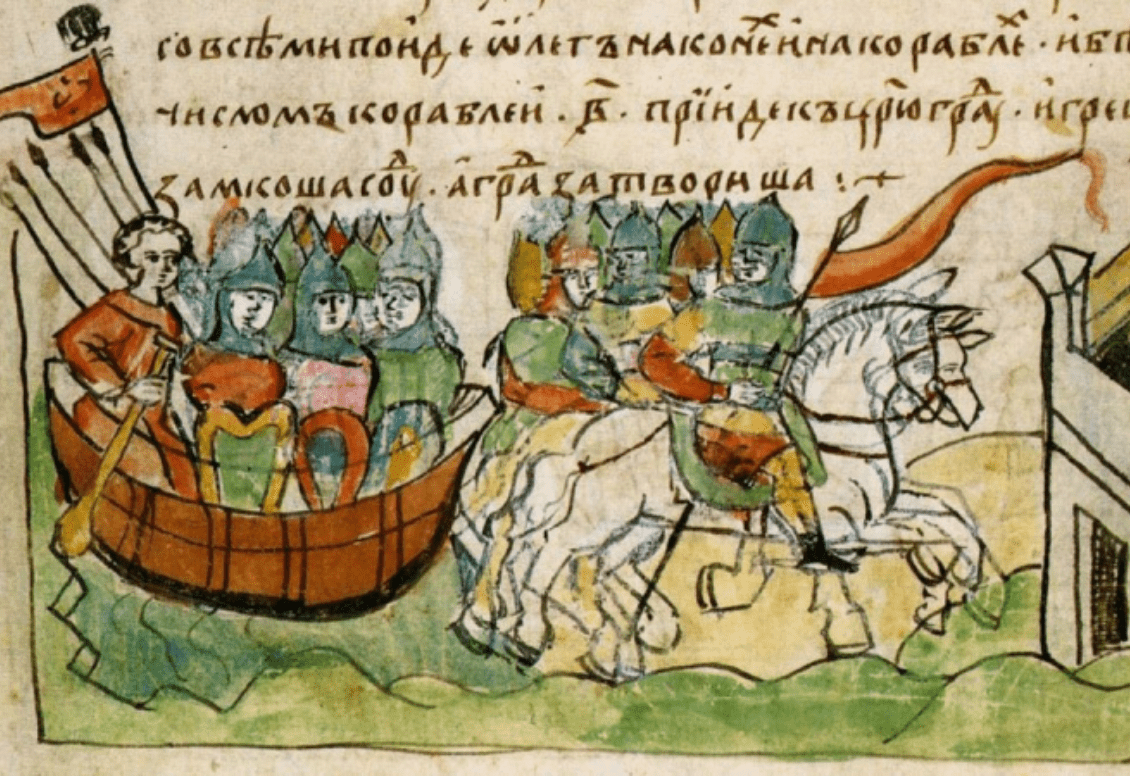 со всѣми поиде ѡлегъ на конеⷯ и на кораблеⷯ · и
числомъ кораблеи · в҃ · прїиде къ цр҃юграⷣу · и
замкоша соуⷣ · а граⷣ затвориша :~